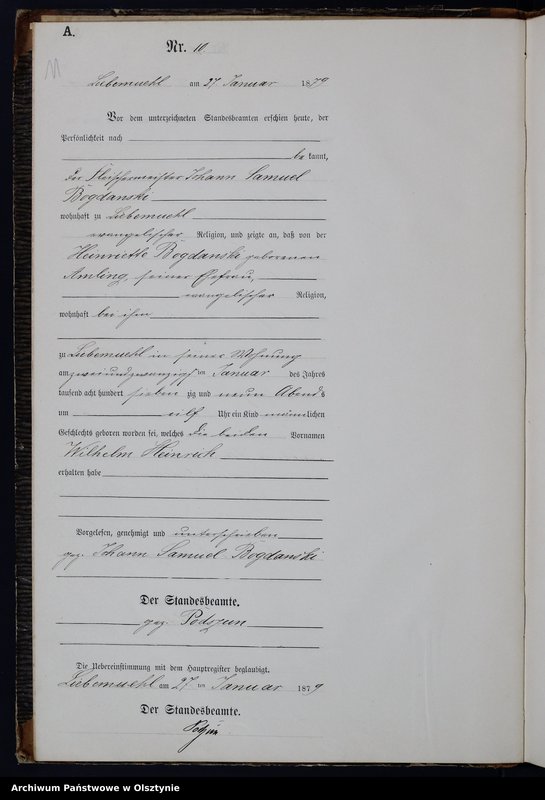 A.
Nr. 10
11
Liebemuehl am 27 Januar 1879
Vor dem unterzeichneten Standesbeamten erschien heute, der
Persönlichkeit nach
bekannt,
der Fleischermeister Johann Samuel
Bogdanski
wohnhaft zu Liebemuehl
evangelischer Religion, und zeigte an, daß von der
Heinriette Bogdanski geborenen
Amling, seiner Ehefrau,
evangelischer Religion,
wohnhaft bei ihm
zu Liebemuehl in seiner Wohnung
am zweiundzwanzigsten Januar des Jahres
tausend acht hundert siebenzig und neun Abends
um eilf Uhr ein Kind männlichen
Geschlechts geboren worden sei, welches die beiden Vornamen
Wilhelm Heinrich
erhalten habe
Vorgelesen, genehmigt und unterschrieben
gez. Johann Samuel Bogdanski
Der Standesbeamte.
gez. Podszun
Die Uebereinstimmung mit dem Hauptregister beglaubigt.
Liebemuehl am 27 ten Januar 1879
Der Standesbeamte.
Archiwum Państwowe w Olsztynie